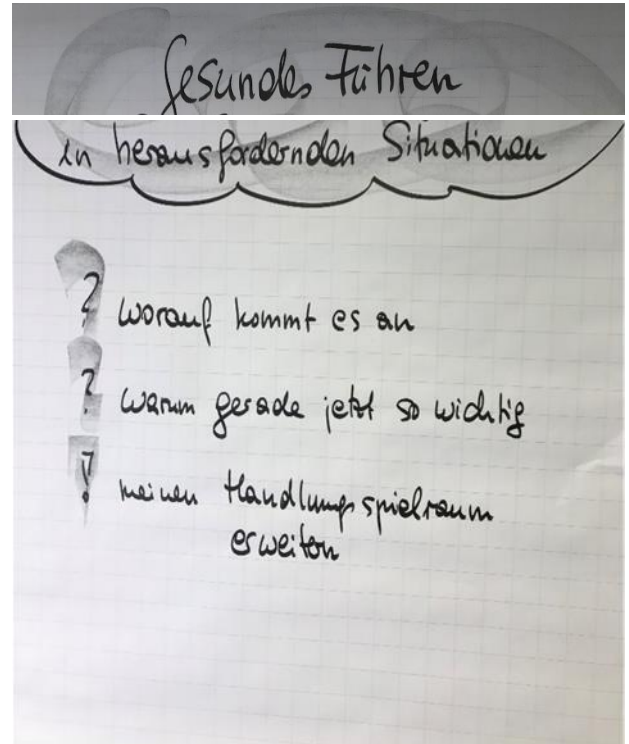 Gesundes Führen
in herausfordernden Situationen
? worauf kommt es an
? warum gerade jetzt so wichtig
! meinen Handlungsspielraum
erweitern